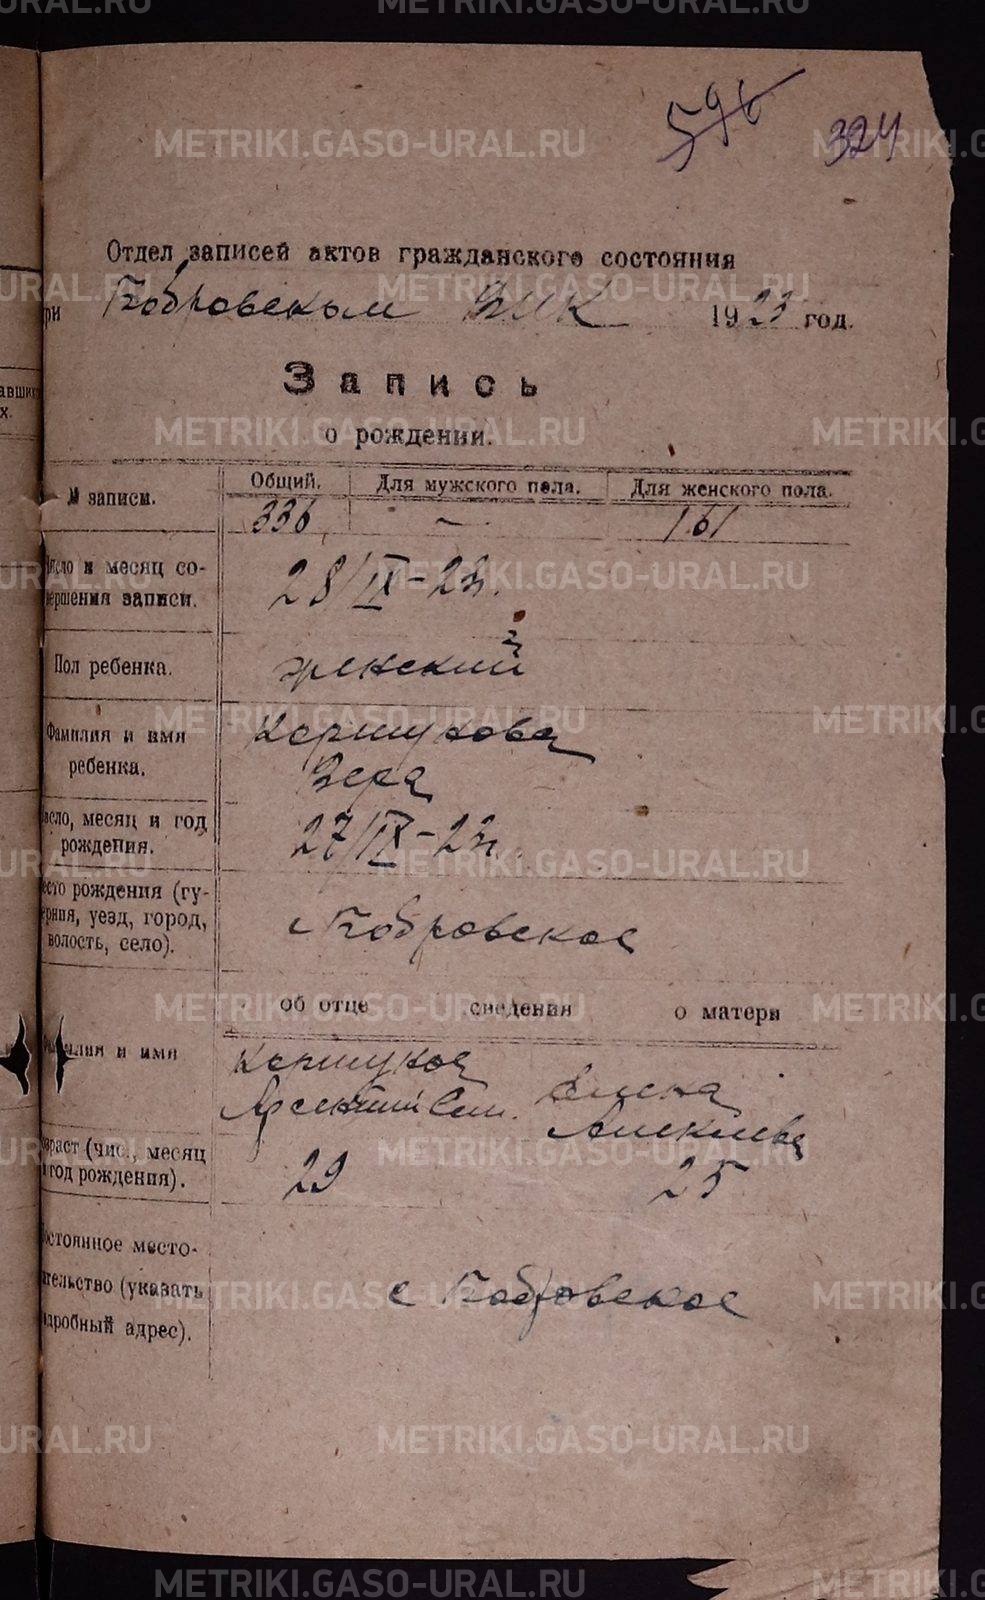 596
324
Отдел записей актов гражданского состояния
ри Бобровском ВИК 1923 год.
Запись
о рождении.
№ записи. Общий. Для мужского пола. Для женского пола.
336 — 161
исло и месяц со-
вершения записи. 28/IX-23г.
Пол ребенка. женский
Фамилия и имя Коршукова
ребенка. Вера
исло, месяц и год
рождения. 27/IX-23г.
есто рождения (гу-
ерния, уезд, город,
волость, село). с Бобровское
об отце сведения о матери
милия и имя Коршуков
Арсентий Сем. Елена
Алексеева
зраст (чис., месяц
и год рождения). 29 25
остоянное место-
ительство (указать с Бобровское
одробный адрес).
авших
х.
METRIKI.GASO-URAL.RU